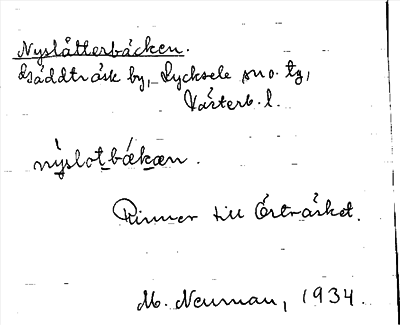 Nyslåtterbäcken.
Gäddträsk by, Lycksele sn o. tg,
Västerb. l.
nýslot̲bǽkæn.
Rinner till Örträsket.
M. Neuman, 1934.